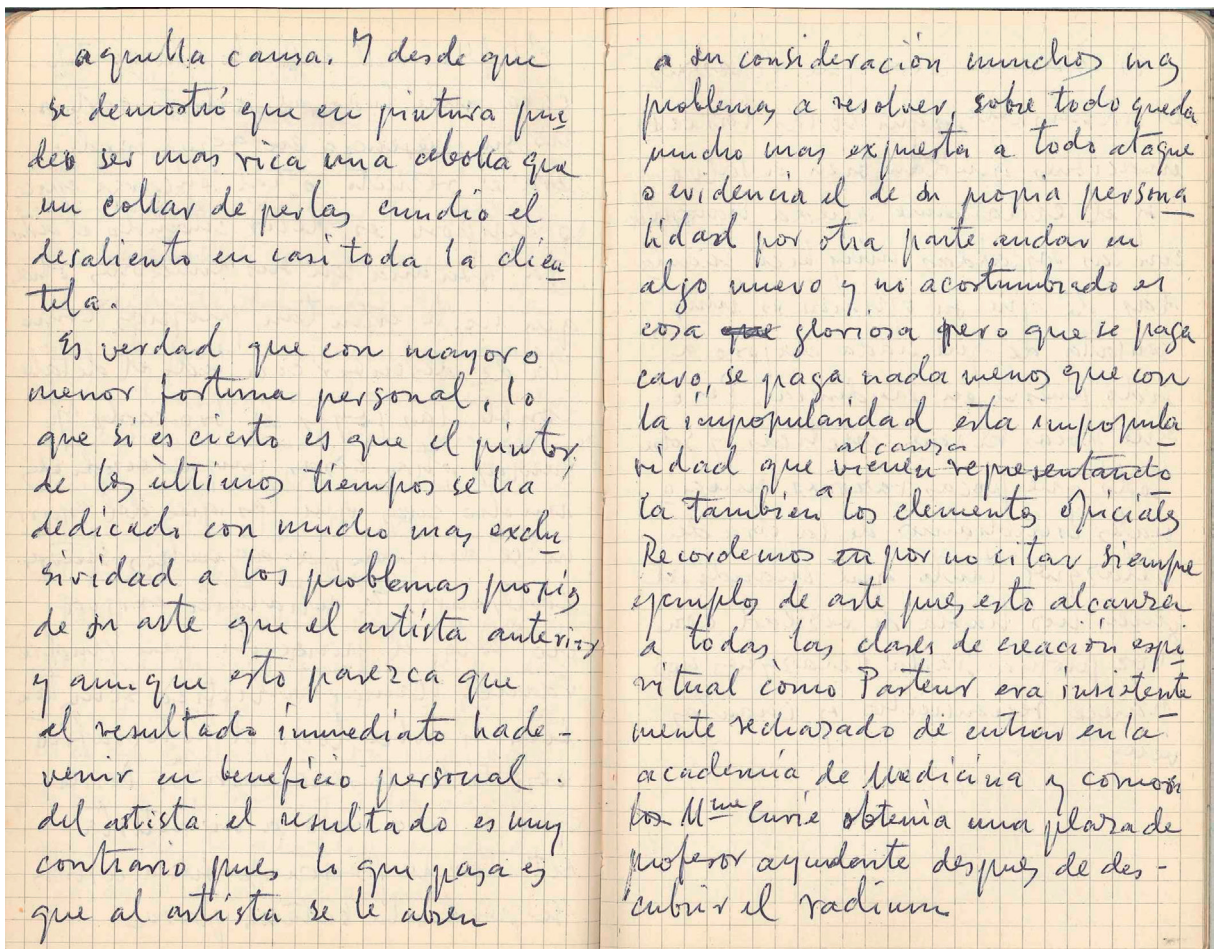 aquella causa. Y desde que
se demostró que en pintura pue
deo ser mas rica una cebolla que
un collar de perlas cundio el
desaliento en casi toda la clien
tela.
Es verdad que con mayor o
menor fortuna personal, lo
que si es cierto es que el pintor
de los últimos tiempos se ha
dedicado con mucho mas exclu
sividad a los problemas propios
de su arte que el artista anterior
y aunque esto parezca que
el resultado immediato hade-
venir en beneficio personal.
del artista el resultado es muy
contrario pues lo que pasa es
que al artista se le abren
a su consideración muchos mas
problemas a resolver, sobre todo queda
mucho mas expuesta a todo ataque
o evidencia el de su propia persona
lidad por otra parte andar en
algo nuevo y no acostumbrado es
cosa que gloriosa pero que se paga
caro, se paga nada menos que con
la impopularidad esta impopula
ridad que vienen representando
alcanza
la también a los elementos oficiales
Recordemos en por no citar siempre
ejemplos de arte pues esto alcanza
a todas las clases de creación espi
ritual còmo Pasteur era insistente
mente rechazado de entrar en la
academia de Medicina y como
los Mme Curie obtenia una plaza de
profesor ayudante despues de des-
cubrir el radium